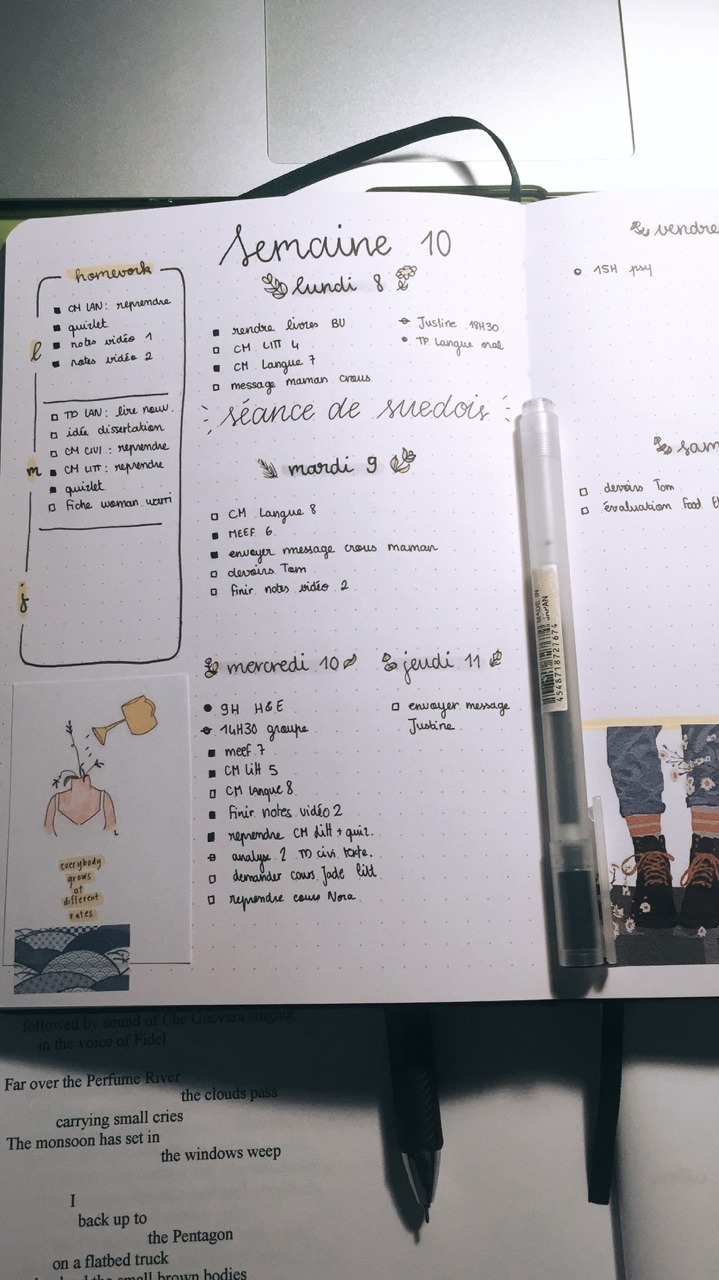 Semaine 10
homework
l
CM LAN: reprendre
quizlet
notes vidéo 1
notes vidéo 2
m
TD LAN: lire nouv.
idée dissertation
CM CIVI: reprendre
CM LITT: reprendre
quizlet
fiche woman
j
lundi 8
rendre livres BU
CM LITT 4
CM Langue 7
message maman crous
Justine 18H30
TP Langue oral
séance de suedois
mardi 9
CM Langue 8
MEEF 6
envoyer message crous maman
devoirs Tom
finir notes vidéo 2
mercredi 10
9H H&E
14H30 groupe
meef 7
CM litt 5
CM langue 8
finir notes vidéo 2
reprendre CM litt + quiz.
analyse 2 TD civi texte.
demander cours Jade litt
reprendre cours Nora
jeudi 11
envoyer message
Justine
vendre
15H psy
sam
devoirs Tom
évaluation food
everybody
grows
at
different
rates
MADE IN JAPAN
4548718727674
followed by sound of Che Guevara singing
in the voice of Fidel
Far over the Perfume River
the clouds pass
carrying small cries
The monsoon has set in
the windows weep
I
back up to
the Pentagon
on a flatbed truck
the small brown bodies